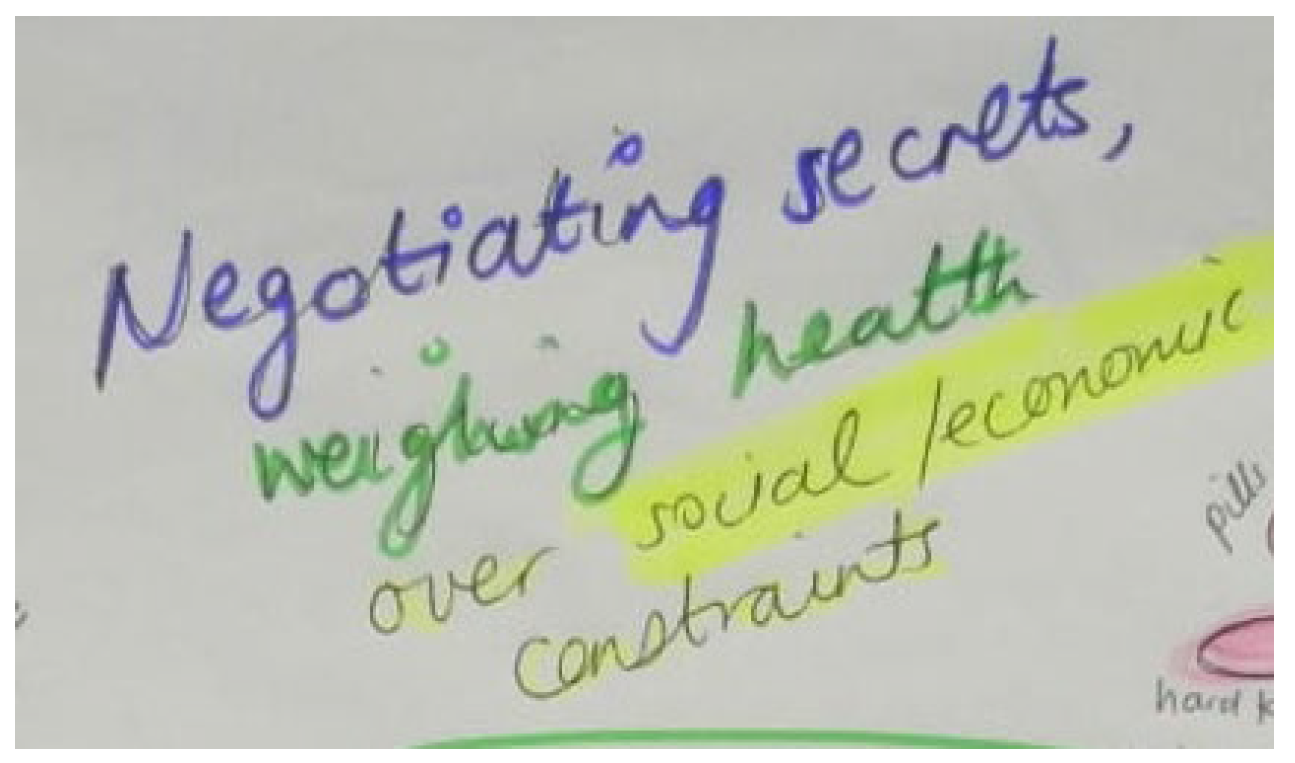 Negotiating secrets,
weighing health
over social/economic
constraints
pills
hard